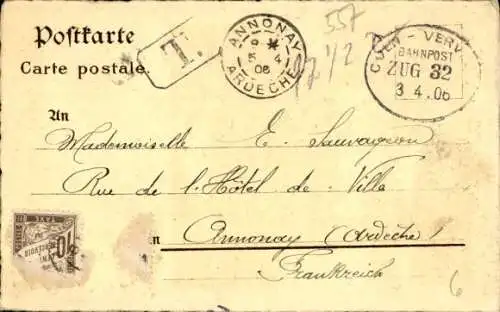 Postkarte
Carte postale.
T.
ANNONAY
9 *
5 4
06
ARDECHE
557
1/2
COELN - VERV
BAHNPOST
ZUG 32
3 4.06
An
Mademoiselle E. Sauvageon
Rue de l'Hôtel de Ville
in Annonay (Ardèche)
Frankreich
10
6